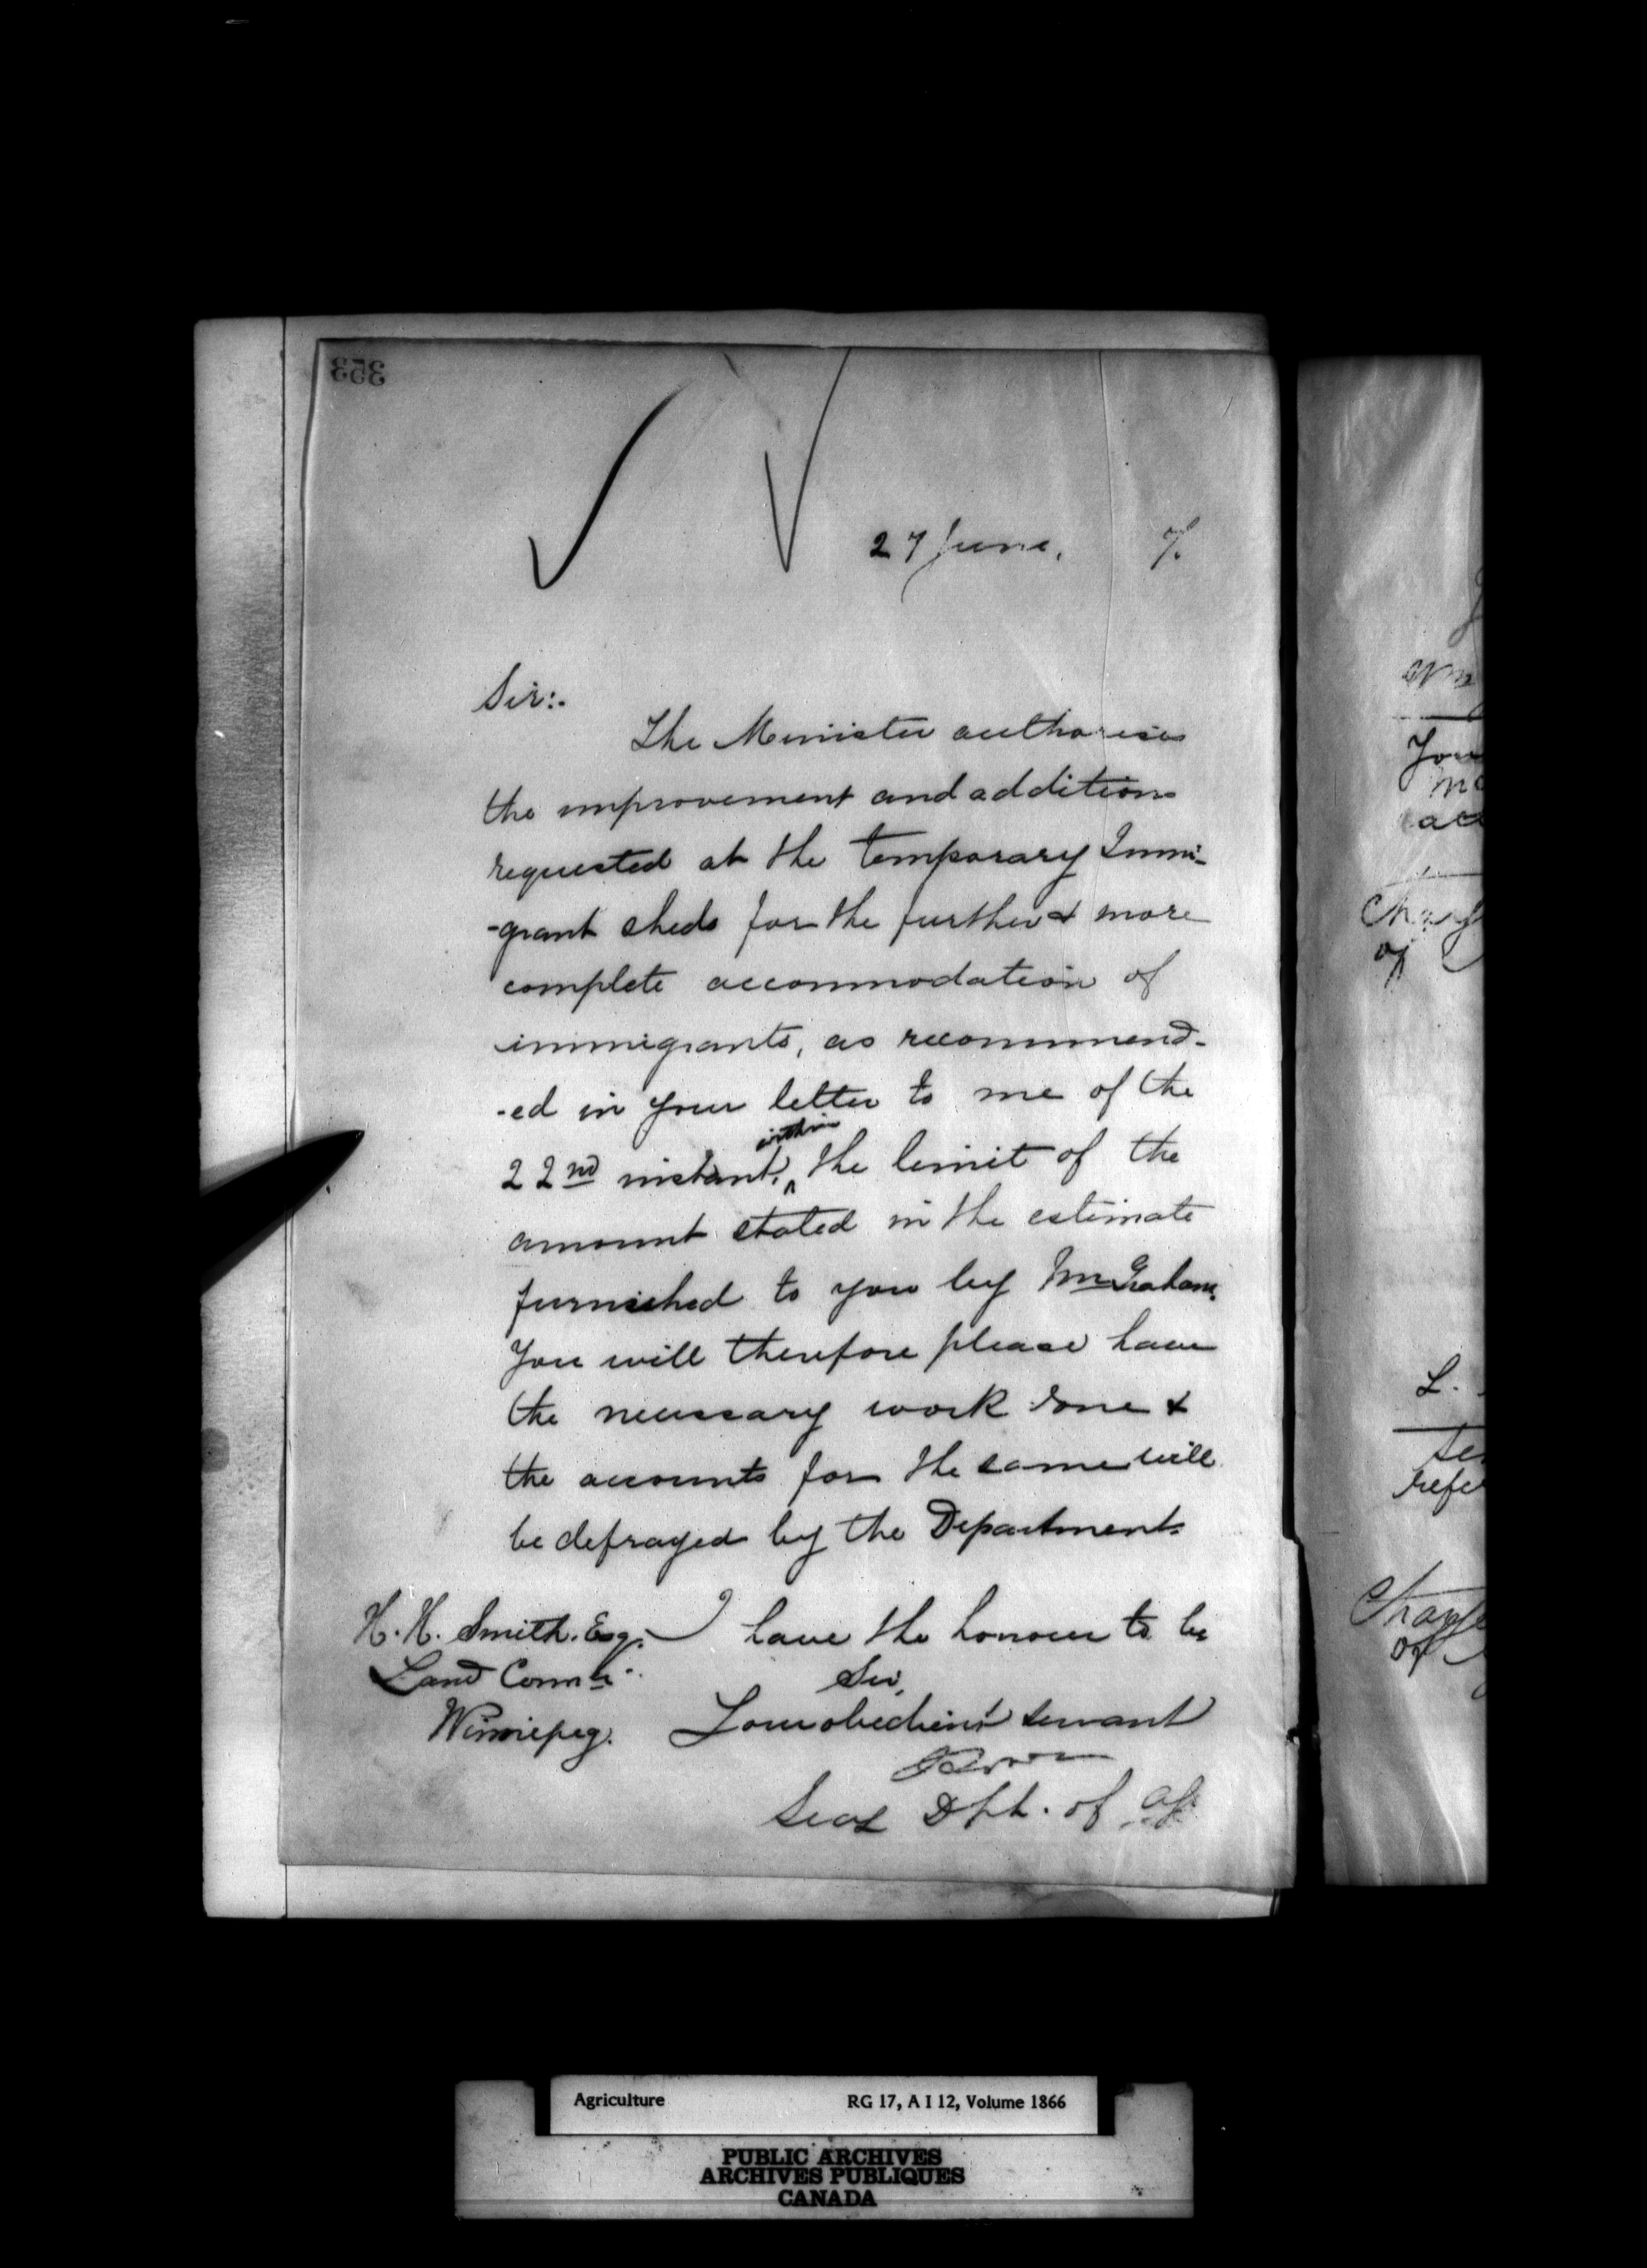 353
27 June, 7.
Sir:-
The Minister authorises
the improvement and additions
requested at the temporary Immi-
-grant sheds for the further & more
complete accommodation of
immigrants, as recommend-
-ed in your letter to me of the
within
22nd instant, ^ the limit of the
amount stated in the estimate
furnished to you by Mr Graham.
You will therefore please have
the necessary work done &
the accounts for the same will
be defrayed by the Department.
H. H. Smith. Esq. I have the honour to be
Land Comr. Sir,
Winnipeg. Your obedient servant
Secy Dpt. of Ag.
You
of
L.
refe
of
Agriculture RG 17, A I 12, Volume 1866
PUBLIC ARCHIVES
ARCHIVES PUBLIQUES
CANADA